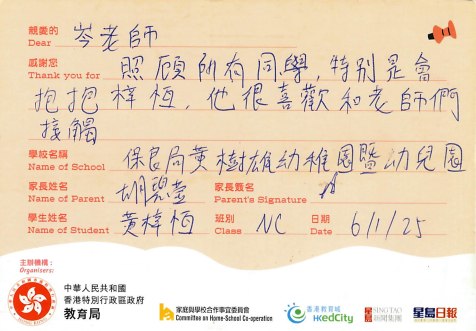 親愛的 岑老師
Dear
感謝您 照顧所有同學,特別是會
Thank you for
抱抱梓恆,他很喜歡和老師們
接觸
學校名稱 保良局黄樹雄幼稚園暨幼兒園
Name of School
家長姓名 胡碧瑩 家長簽名
Name of Parent Parent's Signature
學生姓名 黃梓恆 班別 NC 日期 6/1/25
Name of Student Class Date
主辦機構:
Organisers:
中華人民共和國
香港特別行政區政府
教育局
家庭與學校合作事宜委員會
Committee on Home-School Co-operation
香港教育城
HKedCity
SING TAO
新聞集團
星島日報